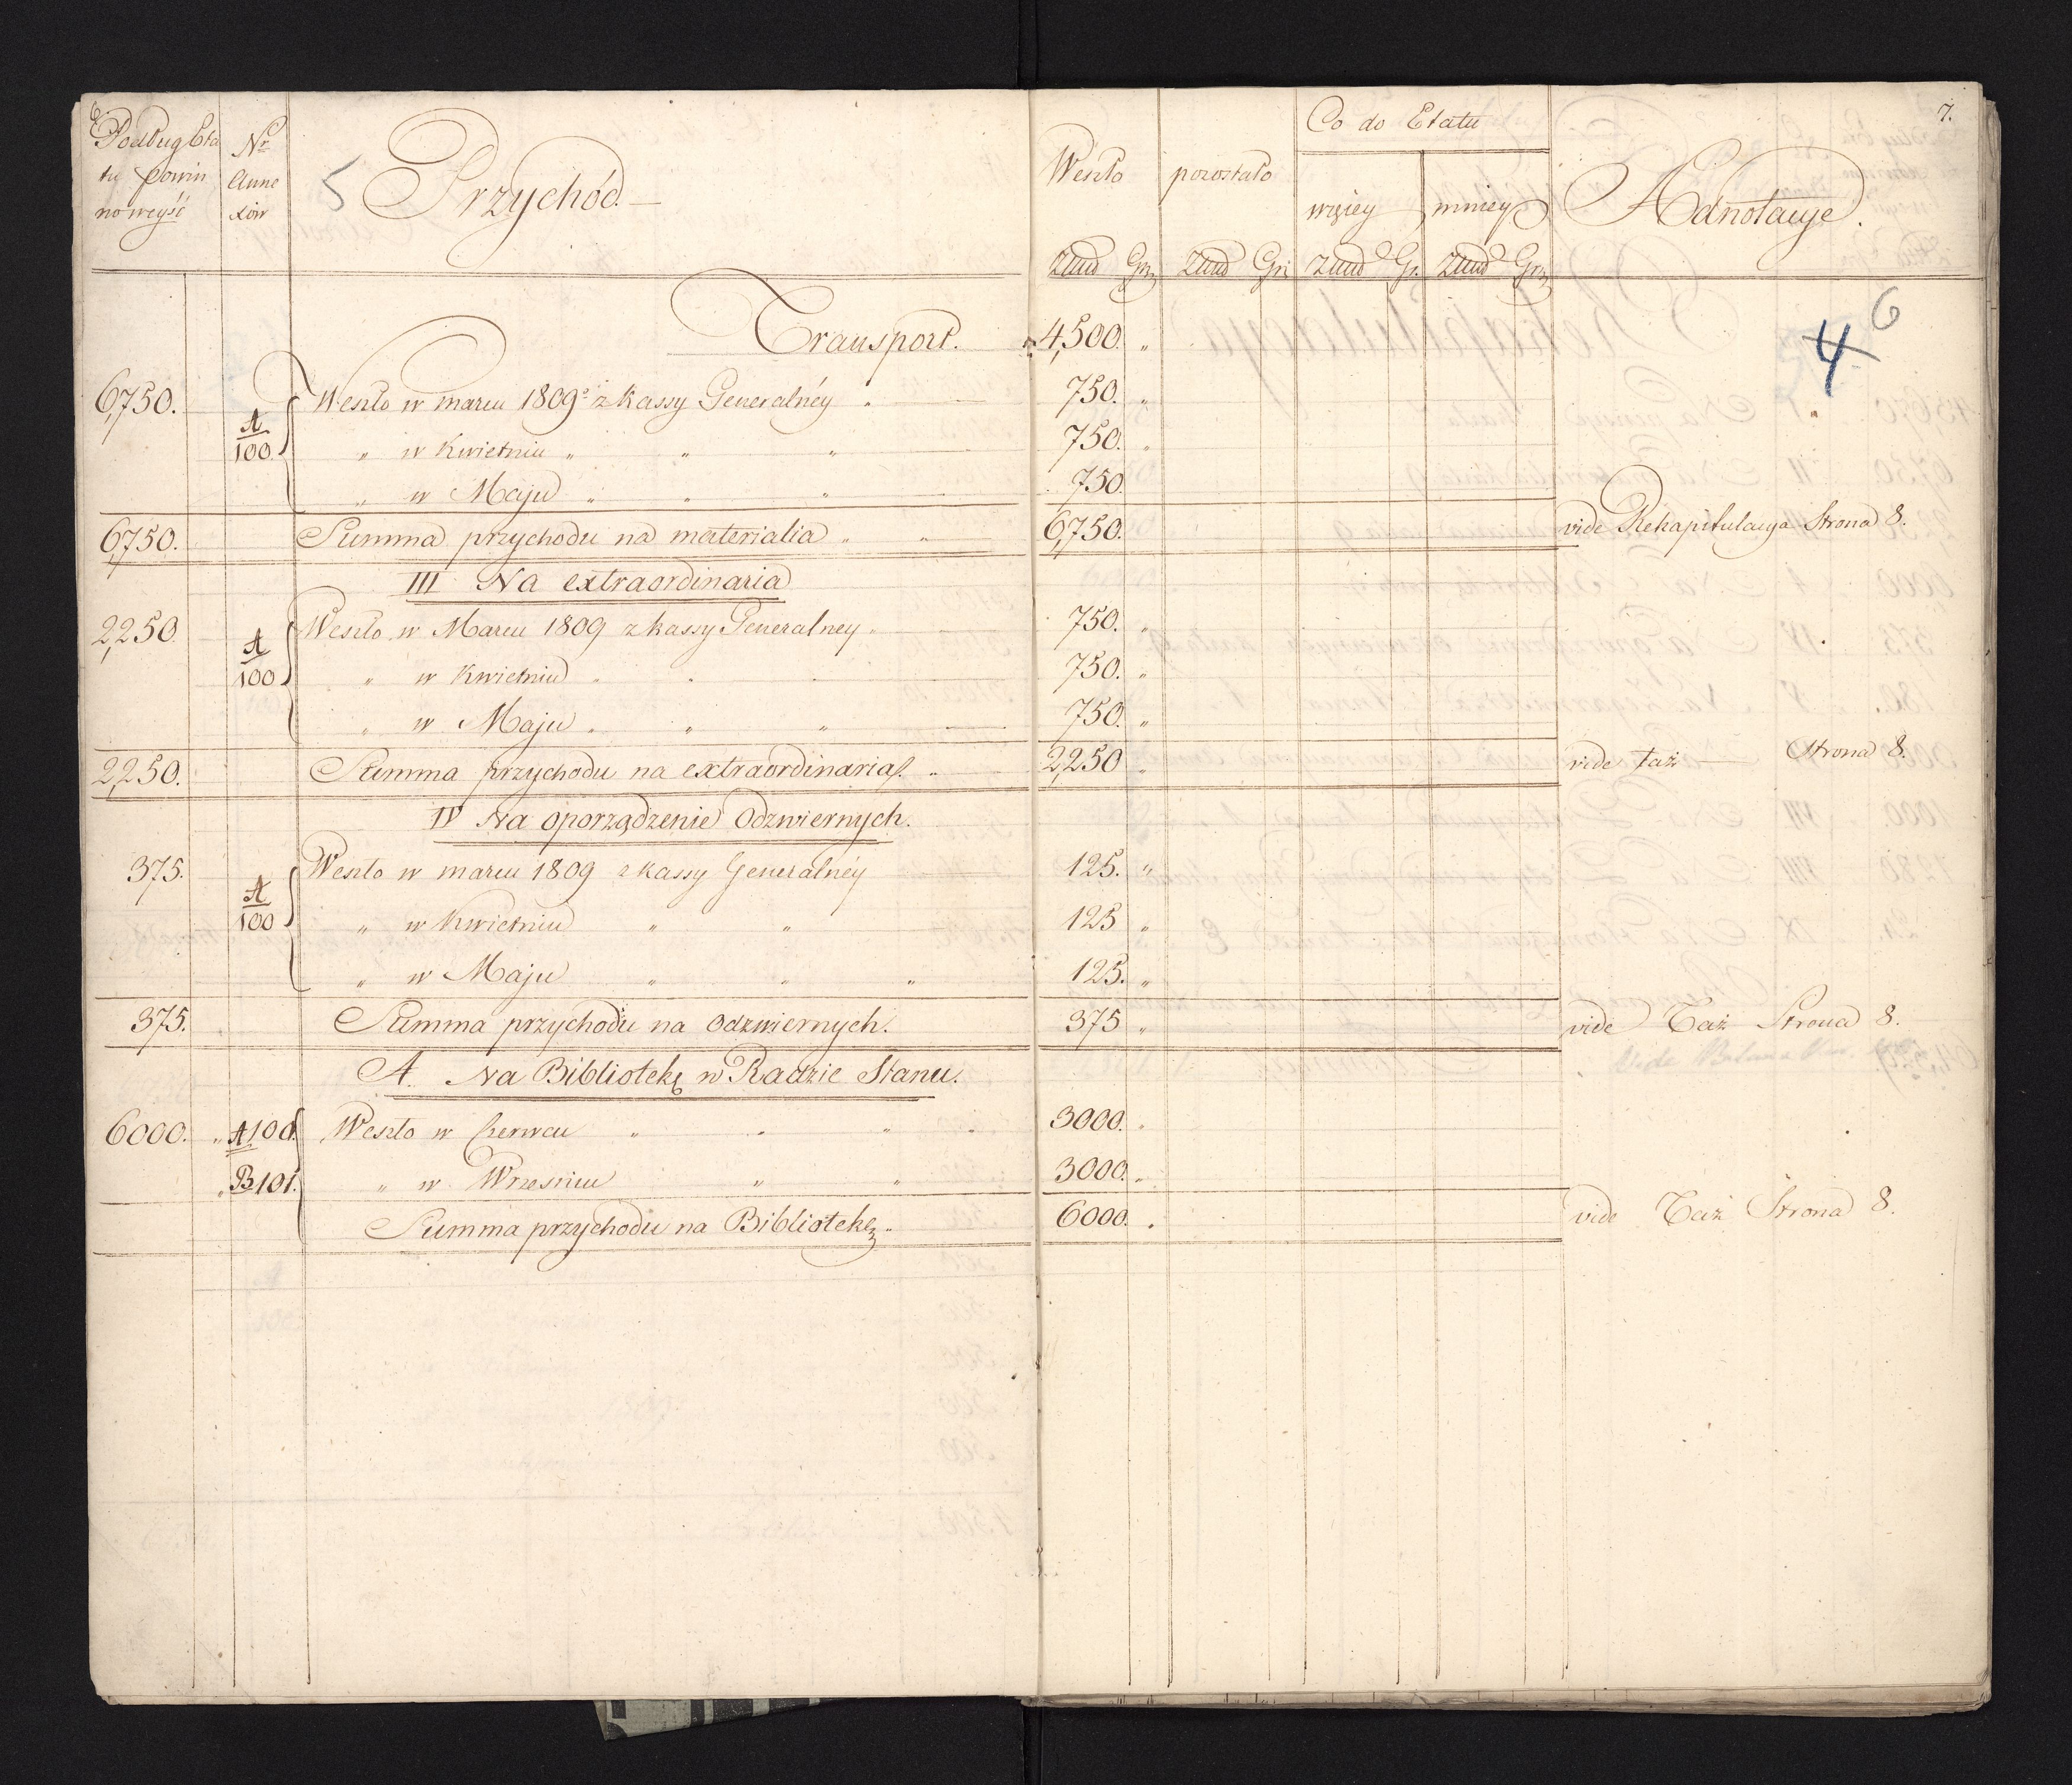 6.
Podług Eta
tu powin
no weyść
Nr
Anne
xów
5 Przychód.
Weszło
pozostało
Co do Etatu
więcey
mniey
7.
Adnotacye.
Transport. 4,500. "
6 4
6,750. Weszło w marcu 1809 z kassy Generalnéy " 750. "
A
100
" w Kwietniu " " " 750. "
" w Maju " " " 750.
6,750. Summa przychodu na materialia " " 6,750. vide Rekapitulacya Strona 8.
III Na extraordinaria
2,250 Weszło w Marcu 1809 z kassy Generalney " 750. "
A
100
" w Kwietniu " " 750. "
" w Maju " " " 750. "
2,250. Summa przychodu na extraordinaria. " 2,250 " vide taż — Strona 8.
IV Na oporządzenie Odzwiernych.
375. Weszło w marcu 1809 z kassy Generalnéy 125. "
A
100
" w Kwietniu " " 125 "
" w Maju " " " 125. "
375. Summa przychodu na Odzwiernych. 375 " vide Taż Strona 8.
A. Na Bibliotekę w Radzie Stanu.
6000. " A 100. Weszło w Czerwcu " " " 3000. "
" B 101. " w Wrzesniu " " 3000. "
Summa przychodu na Bibliotekę " 6000. " vide Taż Strona 8.